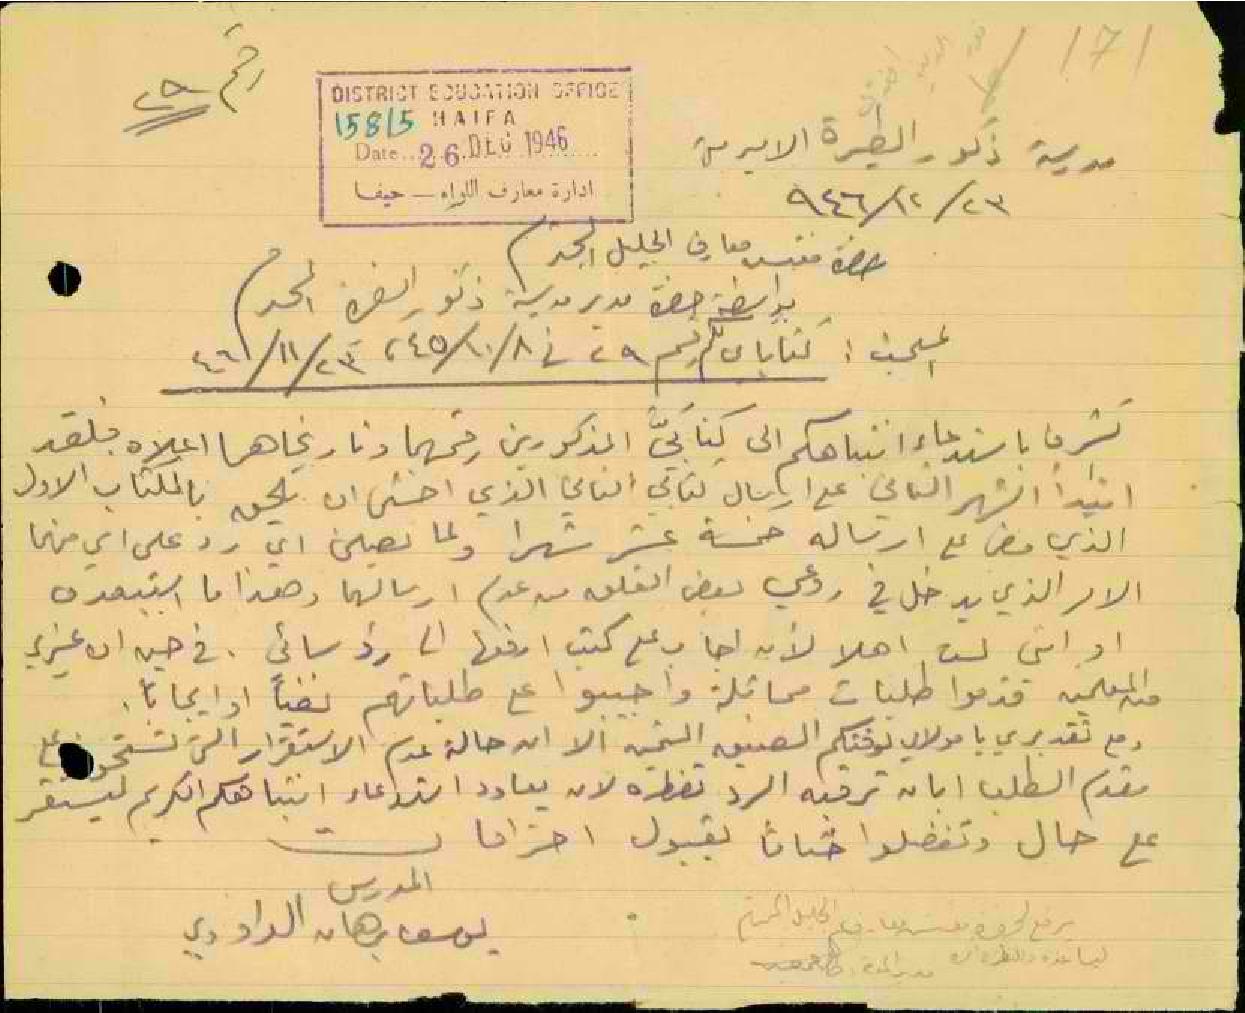 رقم ٢٩
١٧١
DISTRICT EDUCATION OFFICE
158/5 HAIFA
Date.. 26.DEC 1946
ادارة معارف اللواء – حيفا
مدرسة ذكور الطيرة الاميرية
٢٣/١٢/٩٤٦
حضرة مفتش معارف الجليل المحترم
بواسطة حضرة مدير مدرسة ذكور الطيرة المحترم
المبحث : كتاباي لكم رقم ٢٩ في ٨/١٠/٤٥، ٢٣/١١/٤٦
اتشرف باستدعاء انتباهكم الى كتابَيَّ المذكورين رقمهما وتاريخاهما اعلاه فلقد
ابتدأ الشهر الثاني على ارسال كتابي الثاني الذي اخشى ان يلحق بالكتاب الاول
الذي مضى على ارساله خمسة عشر شهرا ولما تصلني اي رد على اي منهما
الامر الذي يدخل في روعي بعض القلق من عدم ارسالهما وهذا ما استبعده
او انني لست اهلا لأن اجاب على كتب ارفعها الى رؤسائي . في حين ان غيري
من المعلمين قدموا طلبات مماثلة واجيبوا على طلباتهم نفياً او ايجاباً.
ومع تقديري يا مولاي لوقتكم الضيق الثمين الا ان حالة عدم الاستقرار التي تستحوذ على
مقدم الطلب ابان ترقبه الرد تضطره لان يعاود استدعاء انتباهكم الكريم ليستقر
على حال وتفضلوا ختاما بقبول احتراماتي
المدرس
يوسف برهان الداودي
يرفع لحضرة مفتش معارف الجليل المحترم